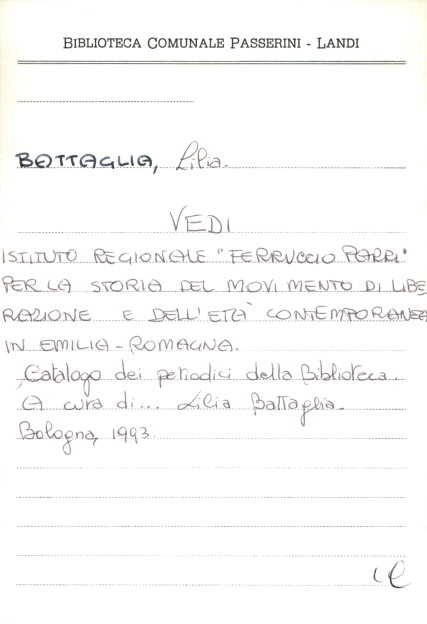 BIBLIOTECA COMUNALE PASSERINI - LANDI
BATTAGLIA, Lilia.
VEDI
ISTITUTO REGIONALE "FERRUCCIO PARRI"
PER LA STORIA DEL MOVIMENTO DI LIBE
RAZIONE E DELL'ETÀ CONTEMPORANEA
IN EMILIA-ROMAGNA.
Catalogo dei periodici della Biblioteca.
A cura di... Lilia Battaglia.
Bologna, 1993.